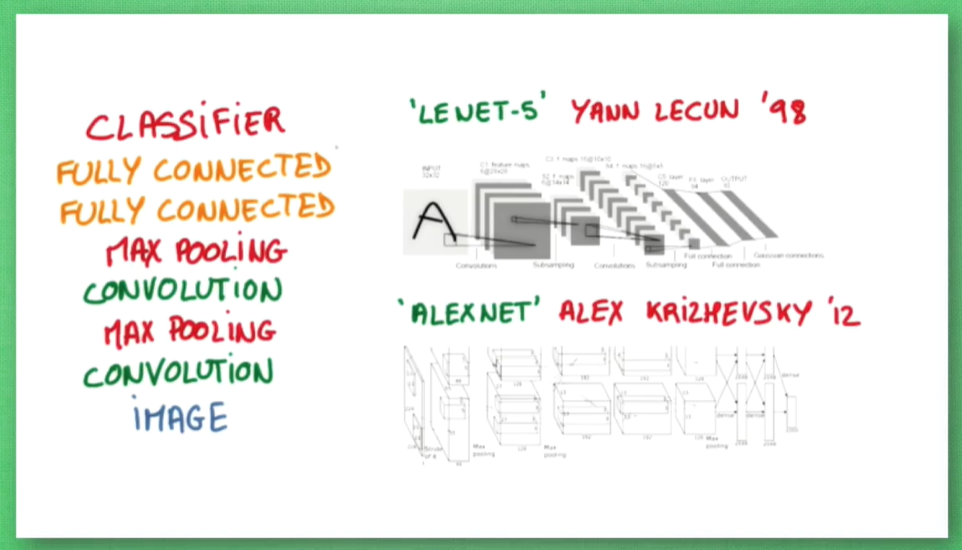 CLASSIFIER
FULLY CONNECTED
FULLY CONNECTED
MAX POOLING
CONVOLUTION
MAX POOLING
CONVOLUTION
IMAGE
'LENET-5' YANN LECUN '98
INPUT
32x32
C1: feature maps
6@28x28
S2: f. maps
6@14x14
C3: f. maps 16@10x10
S4: f. maps 16@5x5
C5: layer
120
F6: layer
84
OUTPUT
10
A
Convolutions
Subsampling
Convolutions
Subsampling
Full connection
Full connection
Gaussian connections
'ALEXNET' ALEX KRIZHEVSKY '12
dense
dense
dense
Max
pooling
Max
pooling
Max
pooling